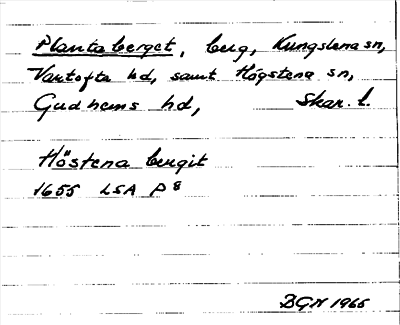 Plantaberget, berg, Kungslena sn,
Vartofta hd, samt Högstena sn,
Gudhems hd, Skar. l.
Höstena bergit
1655 LSA P 8
BGN 1965